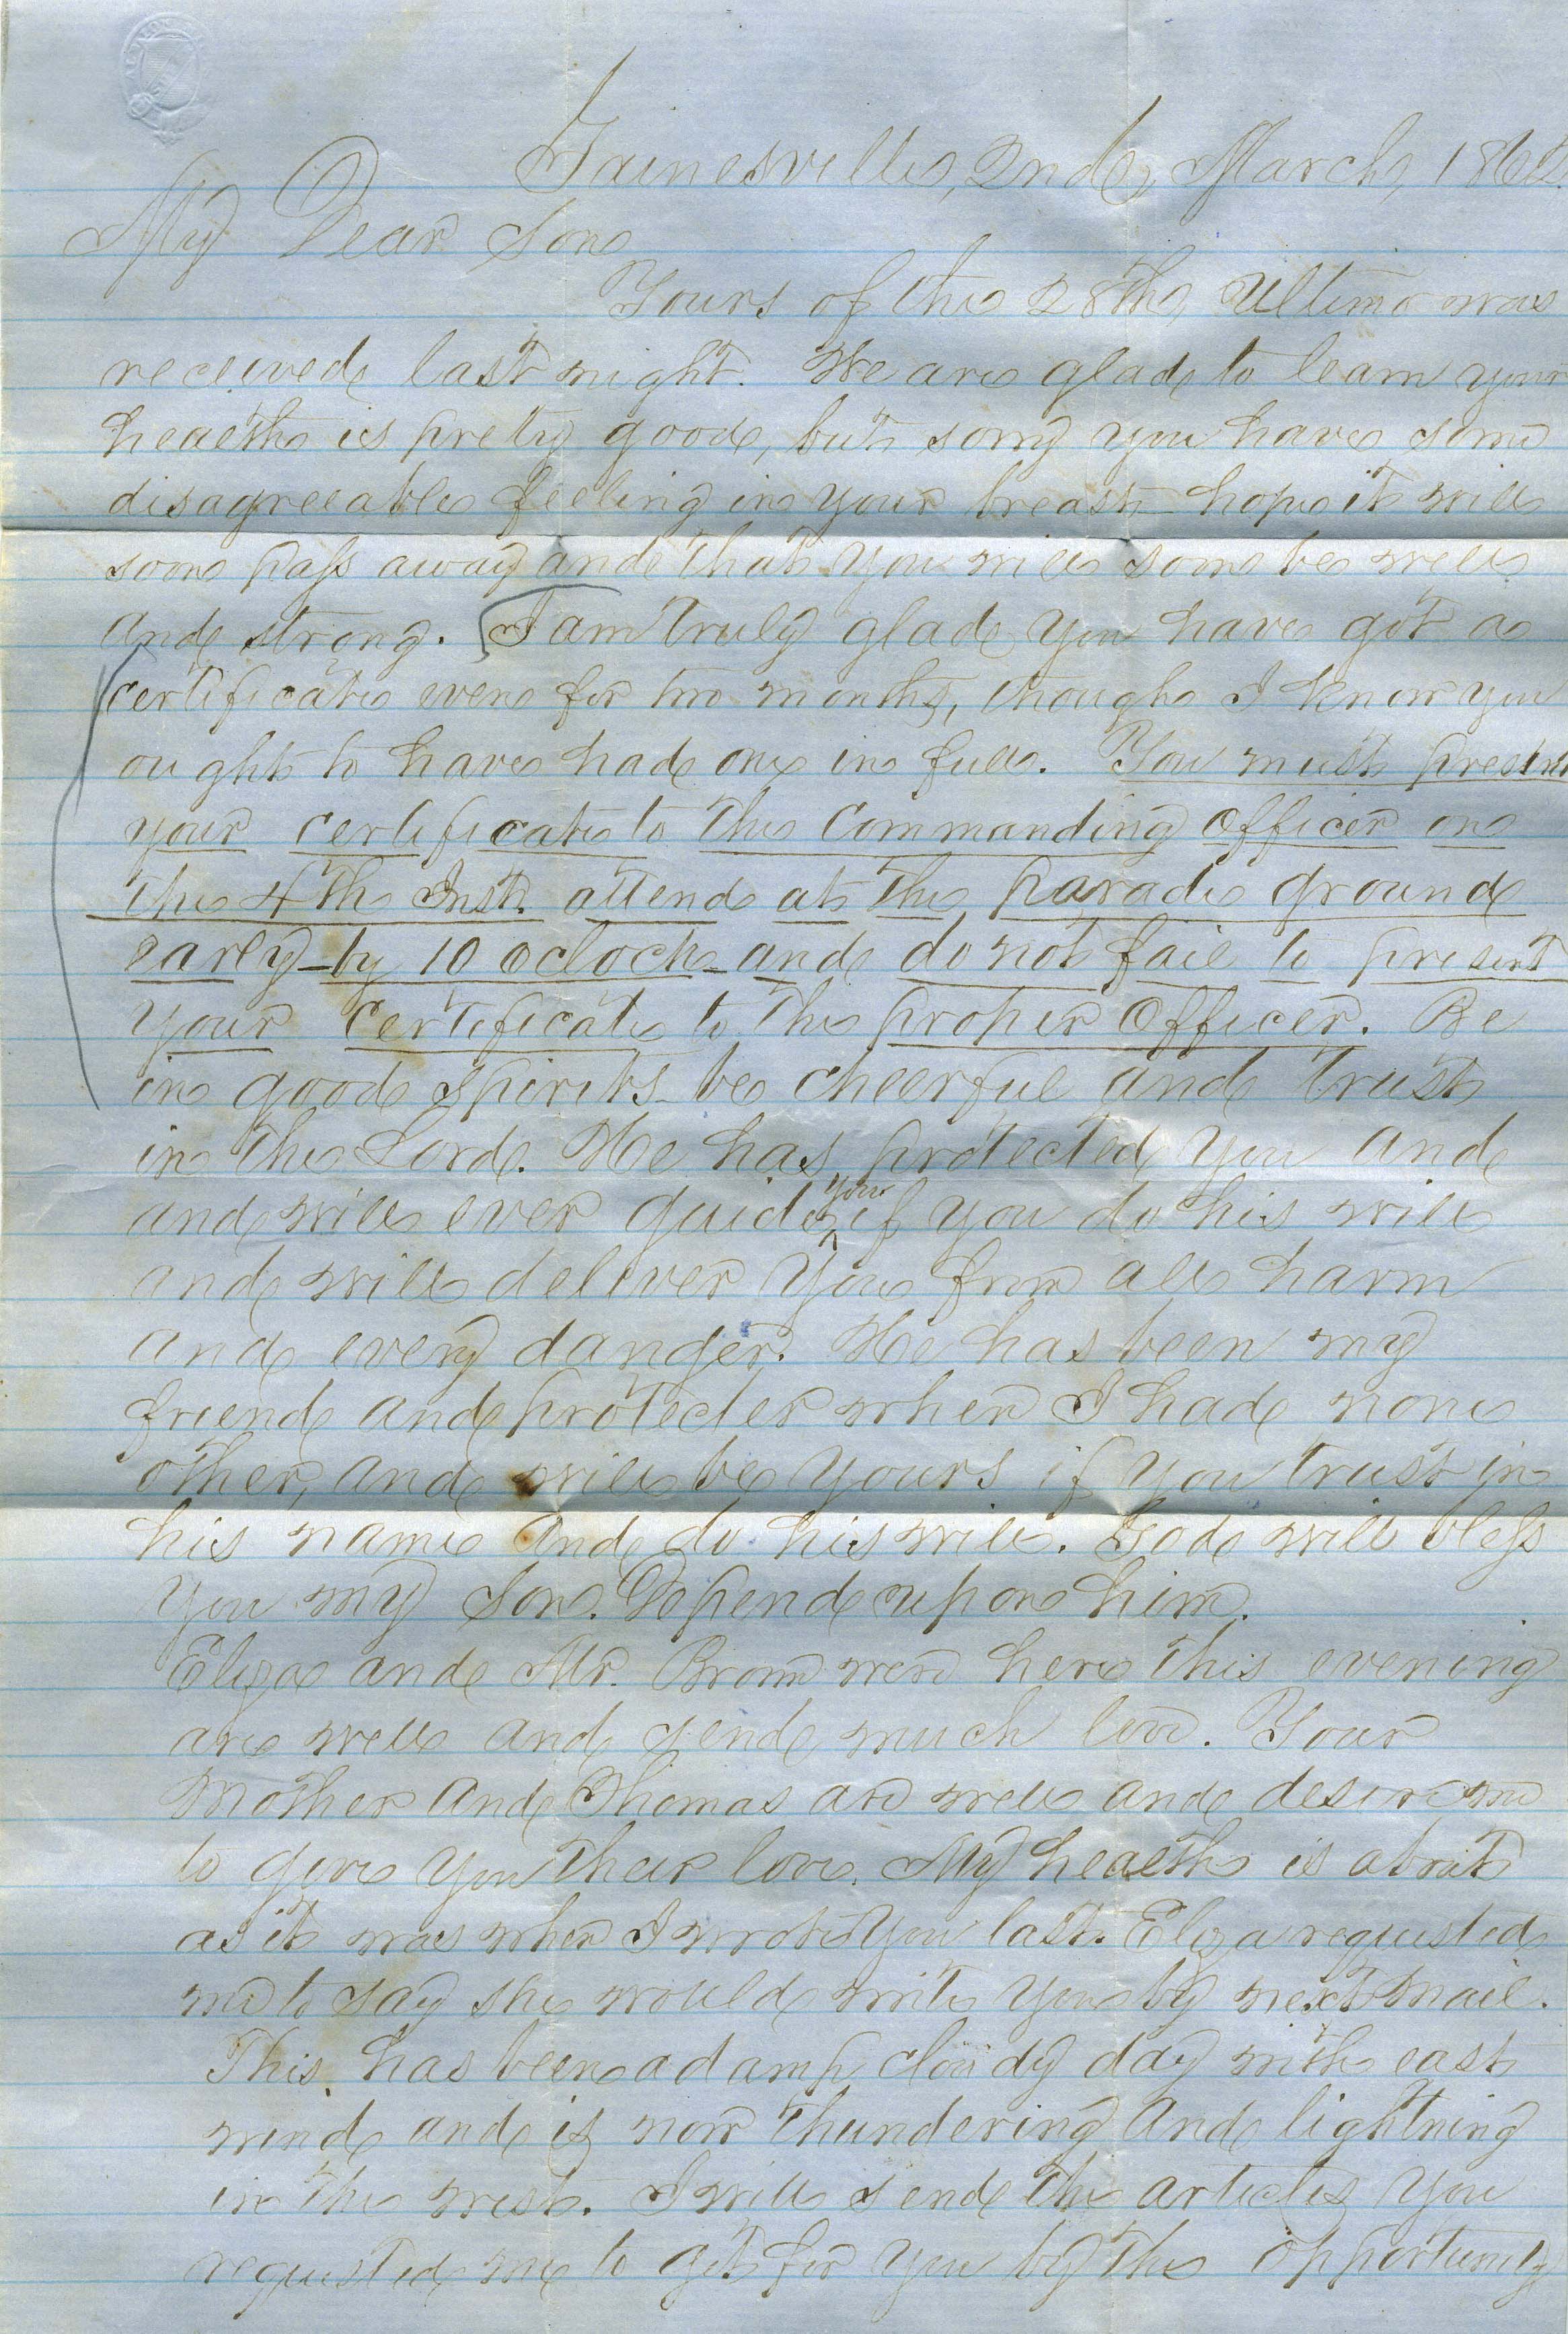 Gainesville, 2nd, March, 1862
My Dear Son
Yours of the 28th, Ultimo was
received last night. We are glad to learn your
health is pretty good, but sorry you have some
disagreeable feeling in your breast hope it will
soon pass away and that you will soon be well
and strong. I am truly glad you have got a
certificate even for two months, though I know you
ought to have had one in full. You must present
your certificate to the Commanding Officer on
the 4th Inst. attend at the parade ground
early - by 10 oclock - and do not fail to present
your certificate to the proper Officer. Be
in good spirits be cheerful and trust
in the Lord. He has protected you and
and will ever guide your if you do his will
and will deliver you from all harm
and every danger. He has been my
friend and protecter when I had none
other, and will be yours if you trust in
his name and do his will. God will bless
you my Son. Depend upon him.
Eliza and Mr. Brown were here this evening
are well and send much love. Your
Mother and Thomas are well and desire me
to give you their love. My health is about
as it was when I wrote you last. Eliza requested
me to say she would write you by next mail.
This has been a damp cloudy day with east
wind and is now thundering and lightning
in the west. I will send the articles you
requested me to get for you by the opportunity